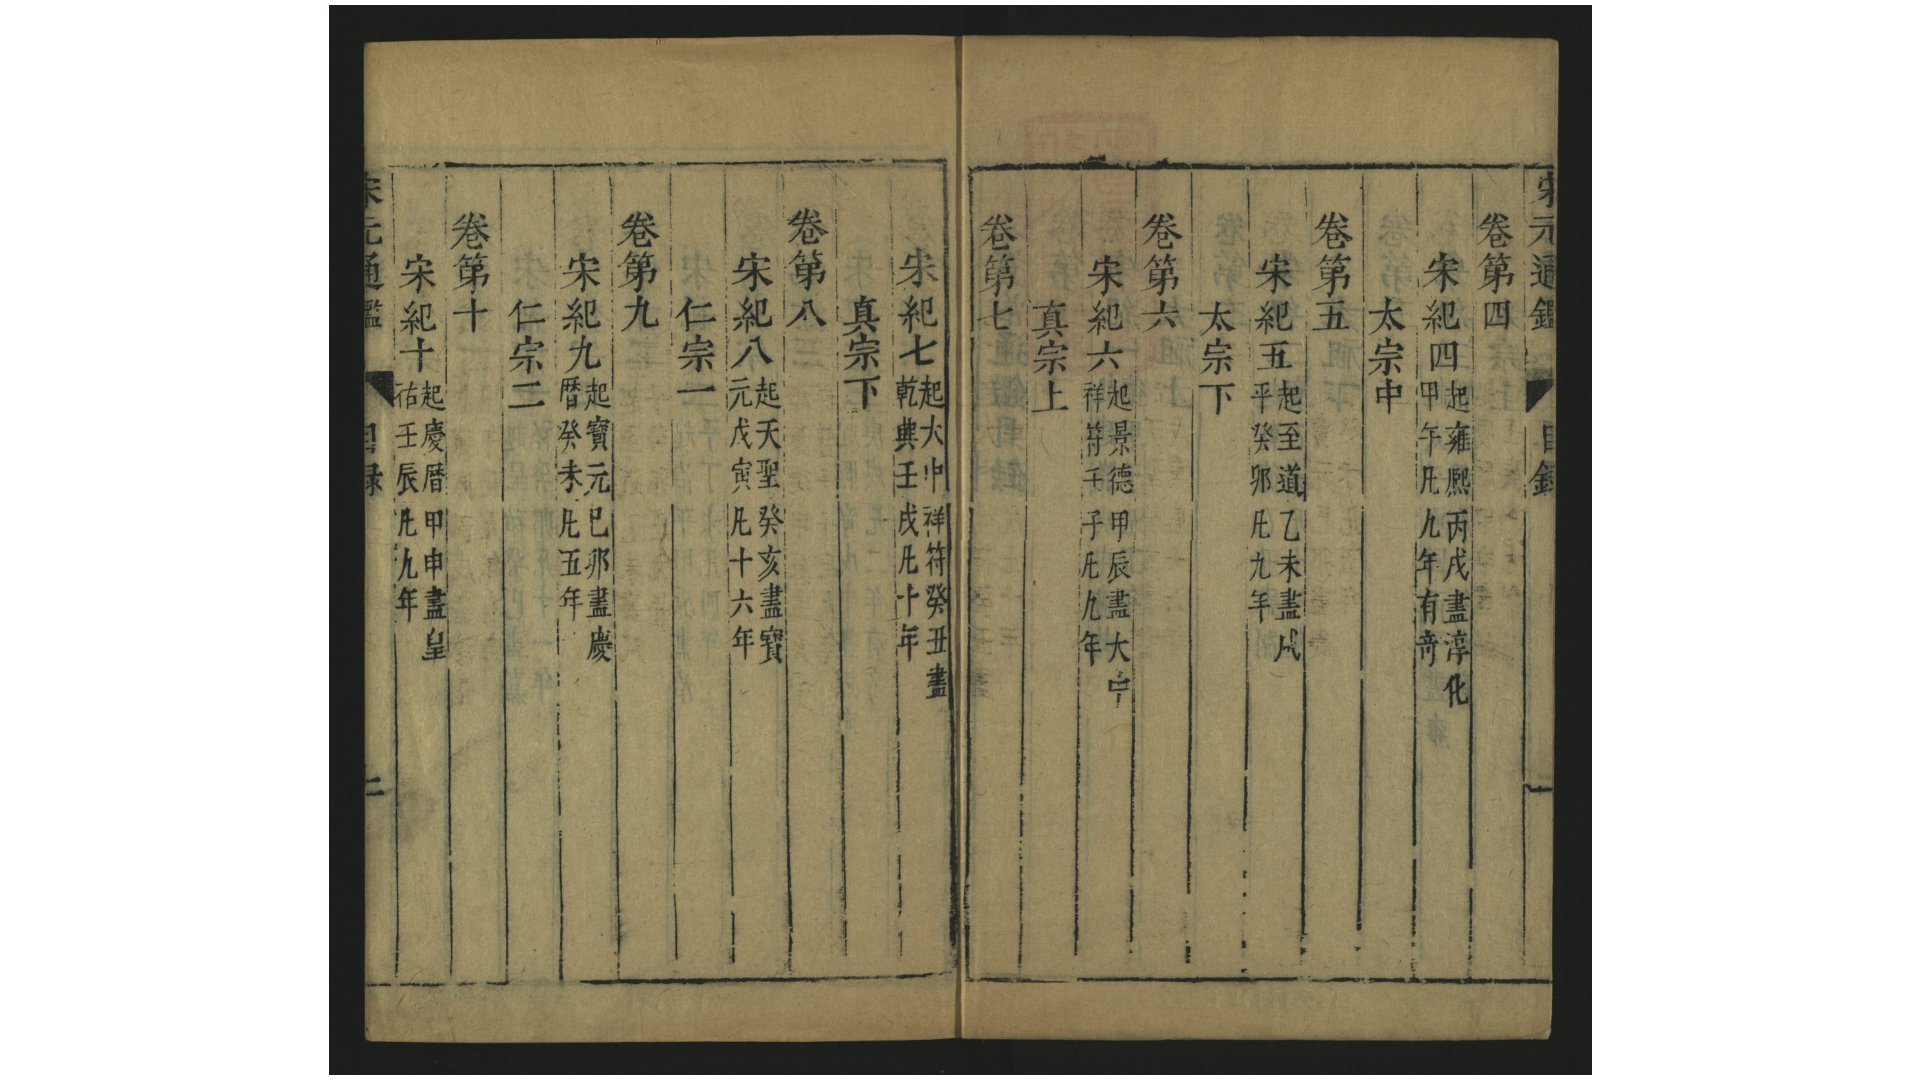 宋元通鑑 目錄 一
卷第四
宋紀四 起雍熙丙戌盡淳化甲午凡九年有奇
太宗中
卷第五
宋紀五 起至道乙未盡咸平癸卯凡九年
太宗下
卷第六
宋紀六 起景德甲辰盡大中祥符壬子凡九年
真宗上
卷第七
宋紀七 起大中祥符癸丑盡乾興壬戌凡十年
真宗下
卷第八
宋紀八 起天聖癸亥盡寶元戊寅凡十六年
仁宗一
卷第九
宋紀九 起寶元己卯盡慶曆癸未凡五年
仁宗二
卷第十
宋紀十 起慶曆甲申盡皇祐壬辰凡九年
宋元通鑑 目録